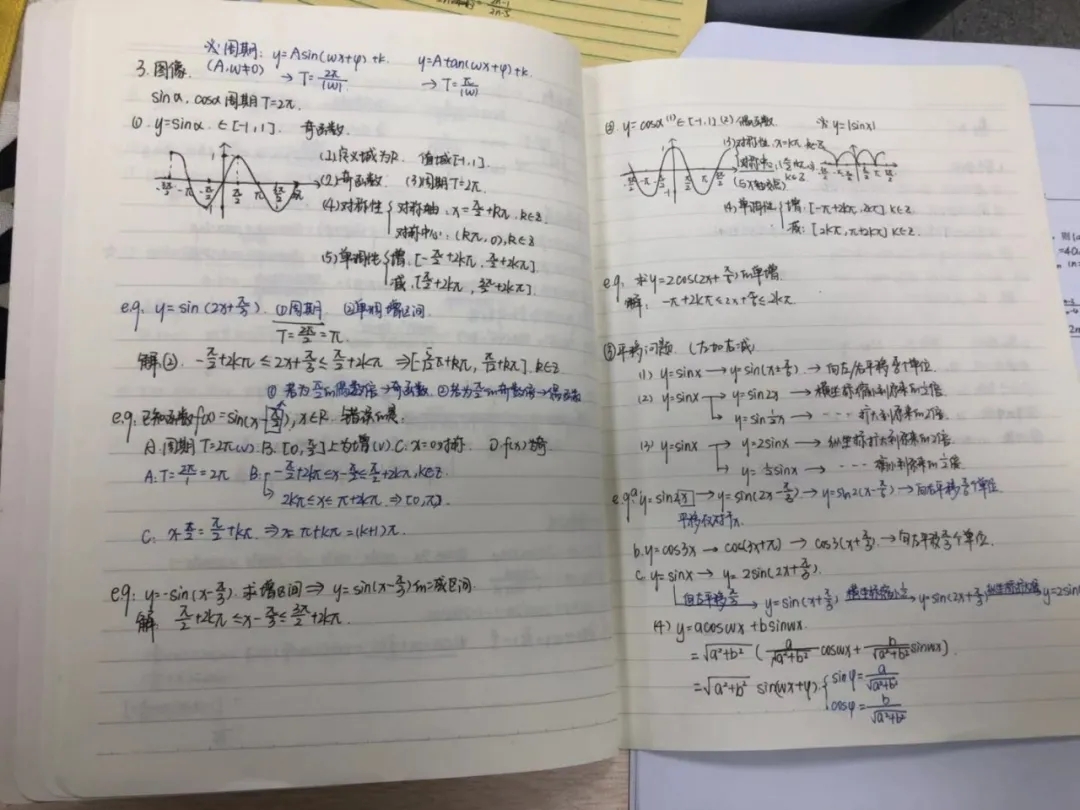 ※周期: y=Asin(wx+φ)+k. y=Atan(wx+φ)+k.
3.图像. (A,w≠0) → T=2π/|w| → T=π/|w|
sinα, cosα周期T=2π.
① y=sinα ∈[-1,1]. 奇函数.
(1)定义域为R. 值域[-1,1].
(2)奇函数. (3)周期T=2π.
(4)对称性 对称轴: x=π/2+kπ, k∈Z
对称中心: (kπ,0),k∈Z
(5)单调性 增: [-π/2+2kπ, π/2+2kπ].
减: [π/2+2kπ, 3π/2+2kπ].
e.g. y=sin(2x+π/3). ①周期 ②单调增区间
T=2π/2=π
解②. -π/2+2kπ≤2x+π/3≤π/2+2kπ ⇒[-5/12π+kπ, π/12+kπ]. k∈Z
① 若为π/2的偶数倍→奇函数. ②若为π/2的奇数倍→偶函数
e.g. 已知函数f(x)=sin(x-π/2), x∈R. 错误的是:
A.周期T=2π(v). B.[0,π/2]上为增(v) C.x=0对称. D.f(x)为奇
A: T=2π/1=2π B: -π/2+2kπ≤x-π/2≤π/2+2kπ, k∈Z.
2kπ≤x≤π+2kπ ⇒[0,π].
C: x-π/2=π/2+kπ. ⇒x=π+kπ=(k+1)π.
e.g. y=-sin(x-π/3) 求增区间⇒ y=sin(x-π/3)的减区间.
解: π/2+2kπ≤x-π/3≤3π/2+2kπ.
② y=cosα (1)∈[-1,1] (2)偶函数 ※ y=|sinx|
(3)对称性: x=kπ, k∈Z
对称中心: k∈Z
(4)单调性 增: [-π+2kπ, 2kπ] k∈Z.
减: [2kπ, π+2kπ] k∈Z.
e.g. 求y=2cos(2x+) 的单增.
解: -π+2kπ≤2x+≤2kπ.
③平移问题. (左加右减)
(1) y=sinx → y=sin(x±) → 向左/右平移个单位.
(2) y=sinx → y=sin2x → 横坐标缩小到原来的1/2倍.
→ y=sin1/2x → ···· 扩大到原来的2倍.
(3) y=sinx → y=2sinx → 纵坐标扩大到原来的2倍.
→ y=1/2sinx → ···· 缩小到原来的1/2倍.
e.g. a. y=sin2x → y=sin(2x-) → y=sin2(x-) → 向右平移个单位.
平移仅对于x.
b. y=cos3x → cos(3x+π) → cos3(x+π/3). → 向左平移π/3个单位.
c. y=sinx → y=2sin(2x+π/3).
向左平移π/3 → y=sin(x+π/3) 横坐标缩小1/2 → y=sin(2x+π/3) 纵坐标扩大2倍 y=2sin
(4) y=acoswx+bsinwx.
=√a²+b² (a/√a²+b² coswx+ b/√a²+b² sinwx).
=√a²+b² sin(wx+φ). sinφ=a/√a²+b²
cosφ=b/√a²+b²